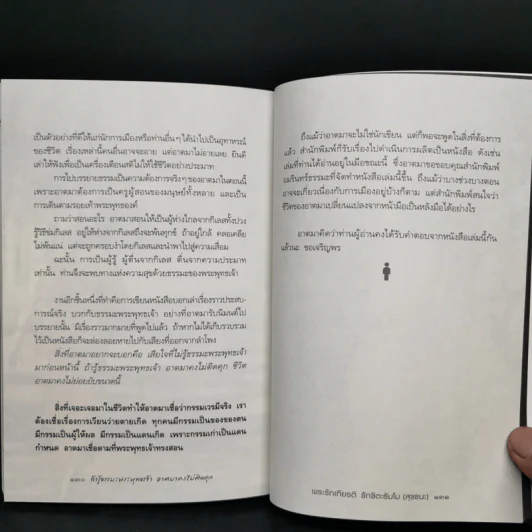 เป็นตัวอย่างที่ดีให้แก่นักการเมืองหรือท่านอื่นๆ ได้นำไปเป็นอุทาหรณ์
ของชีวิต เรื่องเหล่านี้คนอื่นอาจจะอาย แต่อาตมาไม่อายเลย ยินดี
เล่าให้ฟังเพื่อเป็นเครื่องเตือนสติไม่ให้ใช้ชีวิตอย่างประมาท
การไปบรรยายธรรมเป็นความต้องการจริงๆ ของอาตมาในตอนนี้
เพราะอาตมาต้องการเป็นครูผู้สอนของมนุษย์ทั้งหลาย และเป็น
การเดินตามรอยเท้าพระพุทธองค์
ถามว่าสอนอะไร อาตมาสอนให้เป็นผู้ห่างไกลจากกิเลสทั้งปวง
รู้วิธีข่มกิเลส อยู่ให้ห่างจากกิเลสถึงจะพ้นทุกข์ ถ้าอยู่ใกล้ คลอเคลีย
ไม่พ้นแน่ แต่จะถูกครอบงำโดยกิเลสและนำพาไปสู่ความเสื่อม
ฉะนั้น การเป็นผู้รู้ ผู้ตื่นจากกิเลส ตื่นจากความประมาท
เท่านั้น ท่านจึงจะพบทางแห่งความสุขด้วยธรรมะของพระพุทธเจ้า
งานอีกชิ้นหนึ่งที่ทำคือการเขียนหนังสือบอกเล่าเรื่องราวประสบ-
การณ์จริง บวกกับธรรมะพระพุทธเจ้า อย่างที่อาตมารับนิมนต์ไป
บรรยายนั้น มีเรื่องราวมากมายที่พูดไปแล้ว ถ้าหากไม่ได้เก็บรวบรวม
ไว้เป็นหนังสือก็จะล่องลอยหายไปกับเสียงที่ออกจากลำโพง
สิ่งที่อาตมาอยากจะบอกคือ เสียใจที่ไม่รู้ธรรมะพระพุทธเจ้า
มาก่อนหน้านี้ ถ้ารู้ธรรมะพระพุทธเจ้า อาตมาคงไม่ติดคุก ชีวิต
อาตมาคงไม่ย่อยยับขนาดนี้
สิ่งที่เจอะเจอมาในชีวิตทำให้อาตมาเชื่อว่ากรรมเวรมีจริง เรา
ต้องเชื่อเรื่องการเวียนว่ายตายเกิด ทุกคนมีกรรมเป็นของของตน
มีกรรมเป็นผู้ให้ผล มีกรรมเป็นแดนเกิด เพราะกรรมเก่าเป็นแดน
กำหนด อาตมาเชื่อตามที่พระพุทธเจ้าทรงสอน
๑๓๐ ถ้ารู้ธรรมะพระพุทธเจ้า อาตมาคงไม่ติดคุก
ถึงแม้ว่าอาตมาจะไม่ใช่นักเขียน แต่ก็พอจะพูดในสิ่งที่ต้องการ
แล้ว สำนักพิมพ์ก็รับเรื่องไปดำเนินการผลิตเป็นหนังสือ ดังเช่น
เล่มที่ท่านได้อ่านอยู่ในมือขณะนี้ ซึ่งอาตมาขอขอบคุณสำนักพิมพ์
ณรินทร์ธรรมะที่จัดทำหนังสือเล่มนี้ขึ้น ถึงแม้ว่าบางช่วงบางตอน
อาจจะเกี่ยวเนื่องกับการเมืองอยู่บ้างก็ตาม แต่สำนักพิมพ์สนใจว่า
ชีวิตของอาตมาเปลี่ยนแปลงจากหน้ามือเป็นหลังมือได้อย่างไร
อาตมาคิดว่าท่านผู้อ่านคงได้รับคำตอบจากหนังสือเล่มนี้กัน
แล้วนะ ขอเจริญพร
พระรักเกียรติ รักขิตะธัมโม (สุขธนะ) ๑๓๑